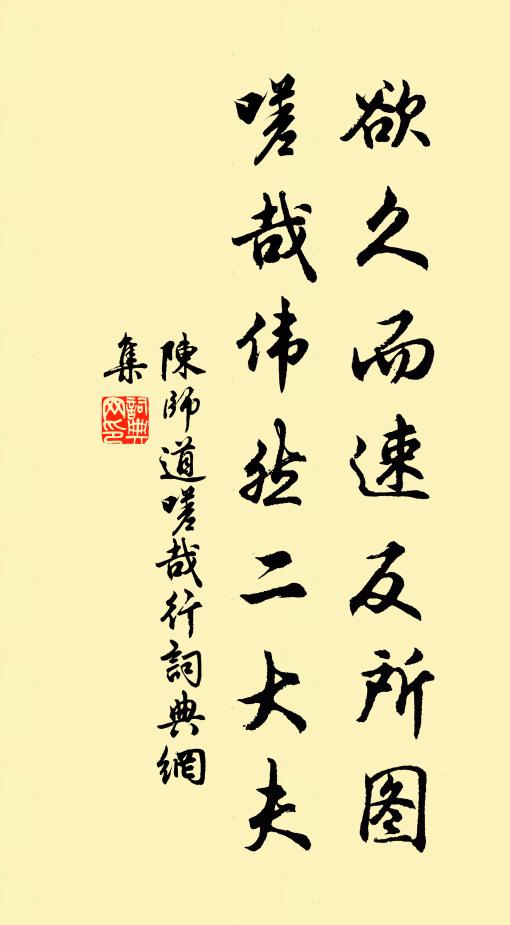 欲久而速反所图
嗟哉伟然二大夫
陳師道嗟哉行詞典網
集
詞典
网印